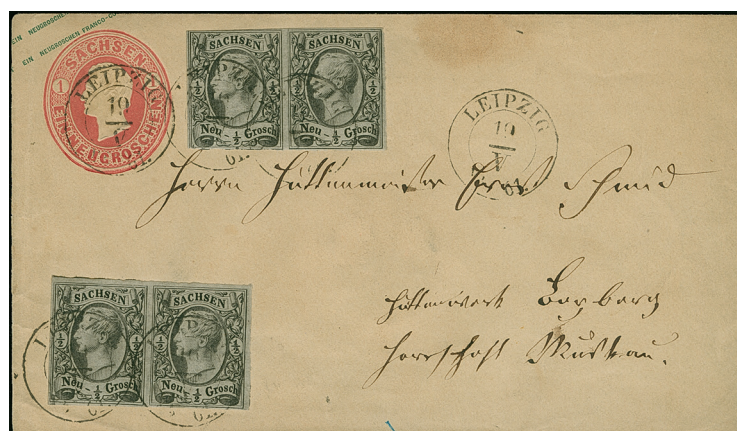 EIN NEUGROSCHEN
EIN NEUGROSCHEN FRANCO-CO
SACHSEN
1
EIN NEUGROSCHEN
LEIPZIG
19
V
61.
SACHSEN
½ ½
Neu ½ Grosch
SACHSEN
½ ½
Neu ½ Grosch
LEIPZIG
19
V
61.
Herrn Hüttenmeister Ernst Schmid
Hüttenwerk Boxberg
Herrschaft Muskau.
SACHSEN
½ ½
Neu ½ Grosch
SACHSEN
½ ½
Neu ½ Grosch